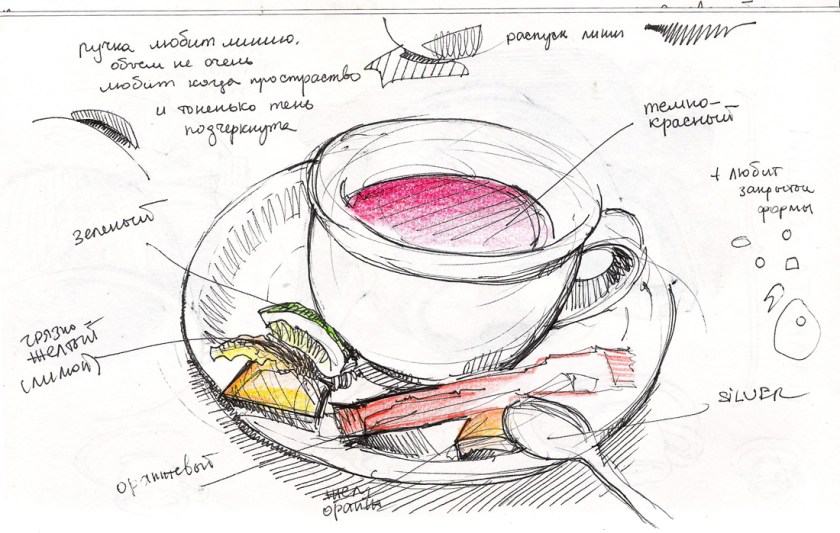 ручка любит линию.
объем не очень
любит когда простраство
и тоненько тень
подчеркнута
роспуск линии
темно-
красный
+ любит
закрытой
формы
зеленый
грязно
желтый
(лимон)
SILVER
оранжевый
жел
оранж